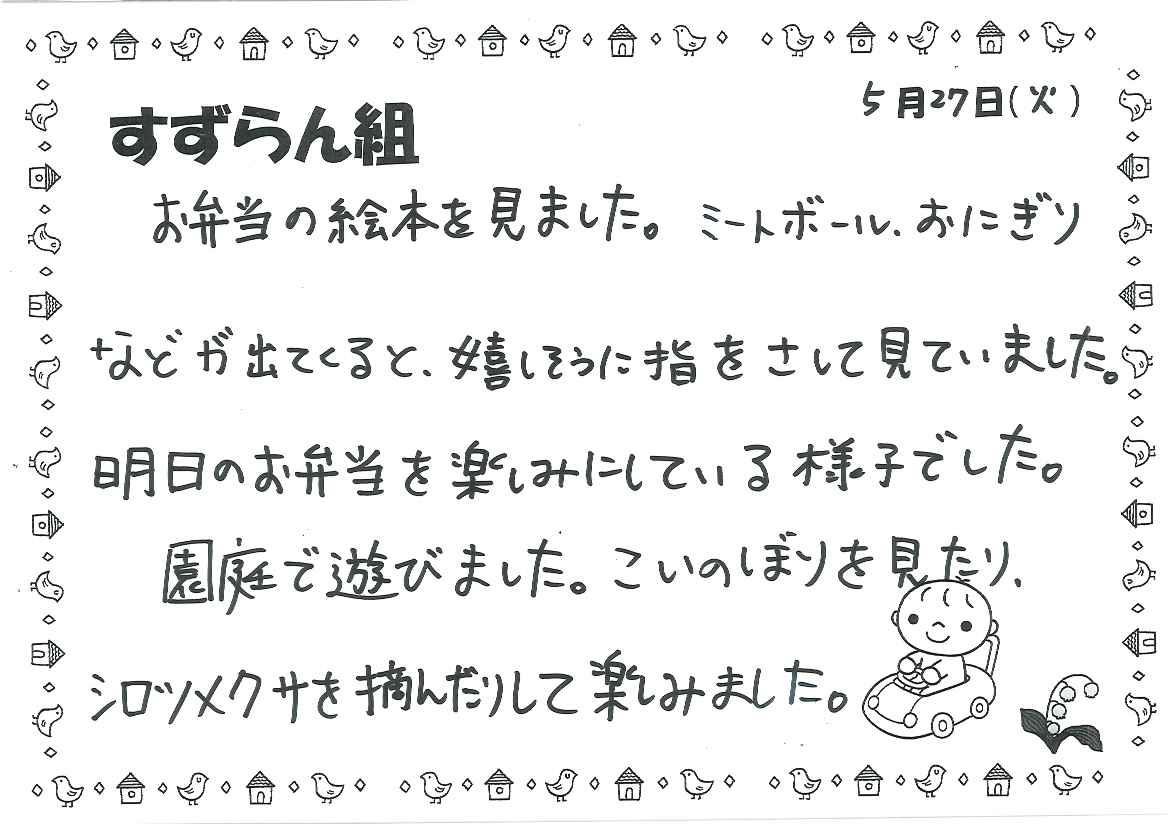 5月27日(火)
すずらん組
お弁当の絵本を見ました。ミートボール、おにぎり
などが出てくると、嬉しそうに指をさして見ていました。
明日のお弁当を楽しみにしている様子でした。
園庭で遊びました。こいのぼりを見たり、
シロツメクサを摘んだりして楽しみました。